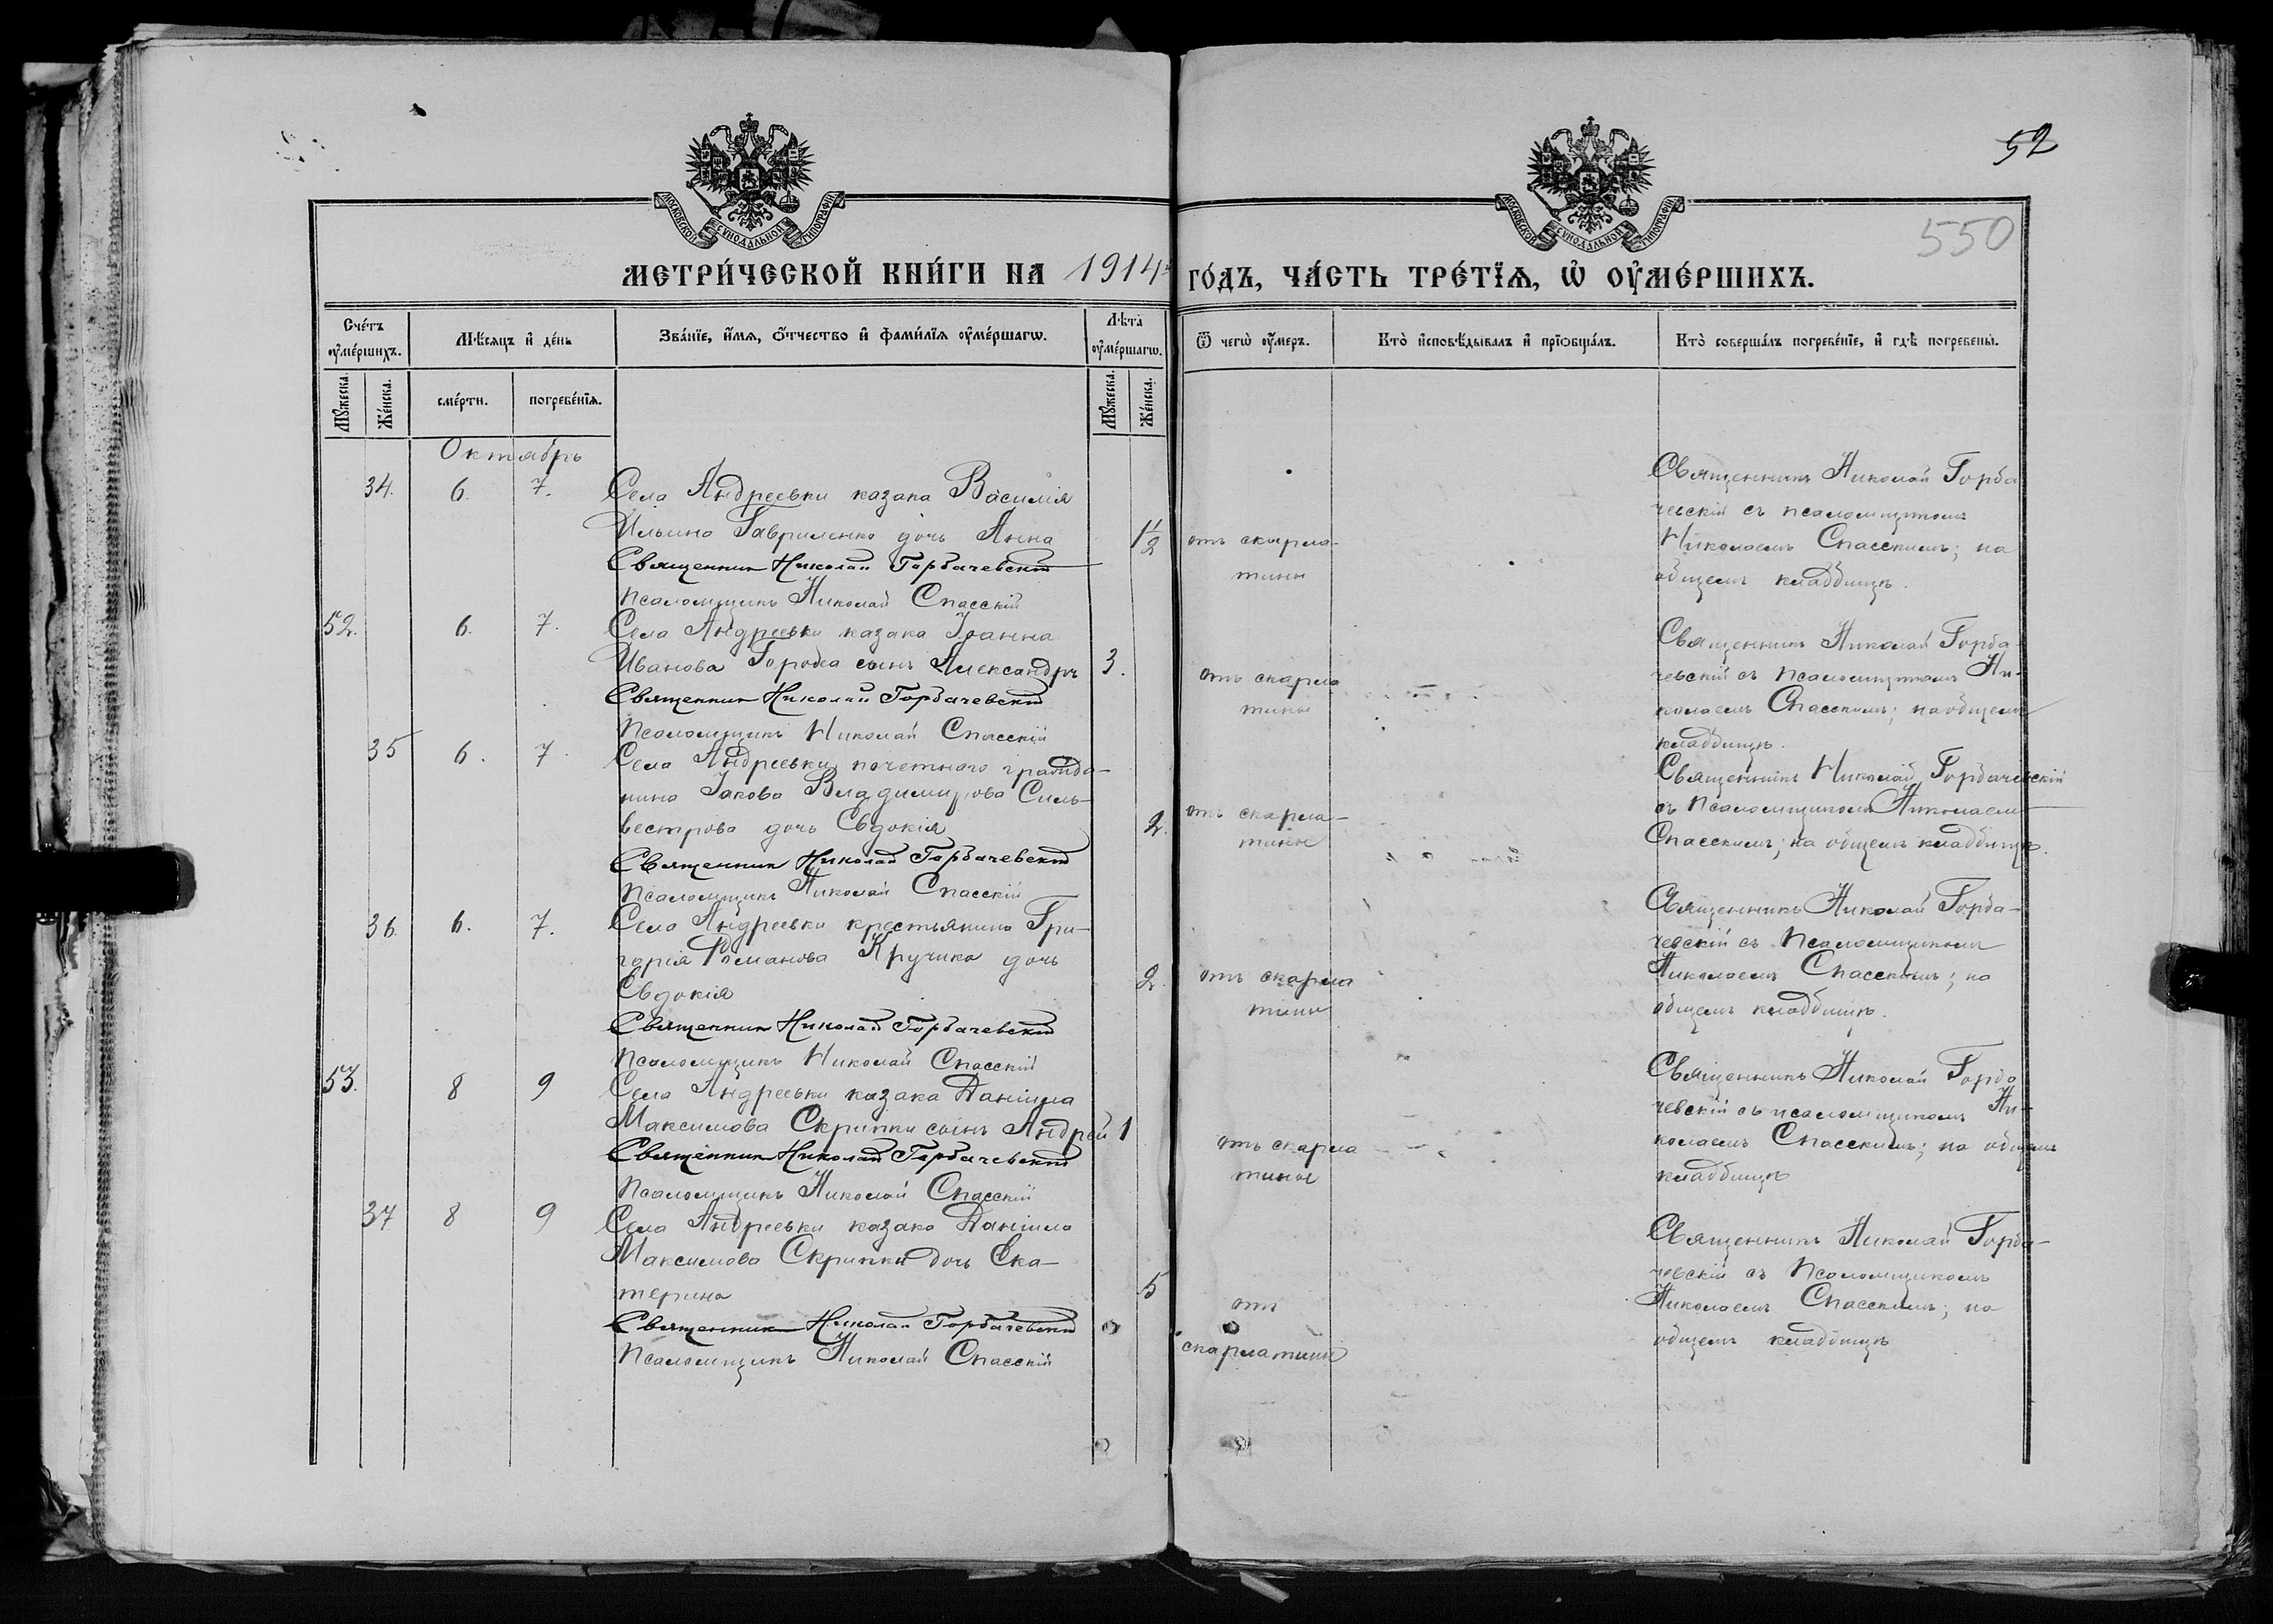 52
550
МОСКОВСКОЙ СѴНОДАЛЬНОЙ ТИПОГРАФІИ
МОСКОВСКОЙ СѴНОДАЛЬНОЙ ТИПОГРАФІИ
МЕТРИ́ЧЕСКОЙ КНИ́ГИ НА 1914 ГО́ДЪ, ЧА́СТЬ ТРЕ́ТЇѦ, Ѡ҆ ОУ҆МЕ́РШИХЪ.
Сче́тъ оу҆ме́ршихъ.
Мѣ́сяцъ и҆ де́нь
Зва́нїе, и҆́мя, ѻ҆́тчество и҆ фами́лїя оу҆ме́ршагѡ.
Лѣ̀та оу҆ме́ршагѡ.
Ѿ чегѡ̀ оу҆́меръ.
Кто̀ и҆сповѣ́дывалъ и҆ прїѡбща́лъ.
Кто̀ соверша́лъ погребе́нїе, и҆ гдѣ̀ погребены̀.
Мꙋ́жеска.
Же́нска.
сме́рти.
погребе́нїя.
Мꙋ́жеска.
Же́нска.
Октябрь
34. 6. 7. Села Андреевки казака Василія
Ильина Гавриленко дочь Анна 1½
Священникъ Николай Горбачевскій
Псаломщикъ Николай Спасскій
отъ скарла-
тины
Священникъ Николай Горба
чевскій съ псаломщикомъ
Николаемъ Спасскимъ; на
общемъ кладбищѣ.
52. 6. 7. Села Андреевки казака Іоанна
Иванова Городка сынъ Александръ 3.
Священникъ Николай Горбачевскій
Псаломщикъ Николай Спасскій
отъ скарла
тины
Священникъ Николай Горба-
чевскій съ Псаломщикомъ Ни-
колаемъ Спасскимъ; на общемъ
кладбищѣ.
35 6. 7. Села Андреевки почетнаго гражда-
нина Іакова Владимирова Силь-
вестрова дочь Евдокія 2.
Священникъ Николай Горбачевскій
Псаломщикъ Николай Спасскій
отъ скарла-
тины
Священникъ Николай Горбачевскій
съ Псаломщикомъ Николаемъ
Спасскимъ; на общемъ кладбищѣ.
36. 6. 7. Села Андреевки крестьянина Гри-
горія Романова Кручика дочь
Евдокія 2.
Священникъ Николай Горбачевскій
Псаломщикъ Николай Спасскій
отъ скарла
тины
Священникъ Николай Горба-
чевскій съ Псаломщикомъ
Николаемъ Спасскимъ; на
общемъ кладбищѣ.
53. 8 9 Села Андреевки казака Даніила
Максимова Скрипки сынъ Андрей 1
Священникъ Николай Горбачевскій
Псаломщикъ Николай Спасскій
отъ скарла
тины
Священникъ Николай Горба
чевскій съ псаломщикомъ Ни-
колаемъ Спасскимъ; на общемъ
кладбищѣ
37 8 9 Села Андреевки казака Даніила
Максимова Скрипки дочь Ека-
терина 5
Священникъ Николай Горбачевскій
Псаломщикъ Николай Спасскій
отъ
скарлатины
Священникъ Николай Горба-
чевскій съ Псаломщикомъ
Николаемъ Спасскимъ; на
общемъ кладбищѣ